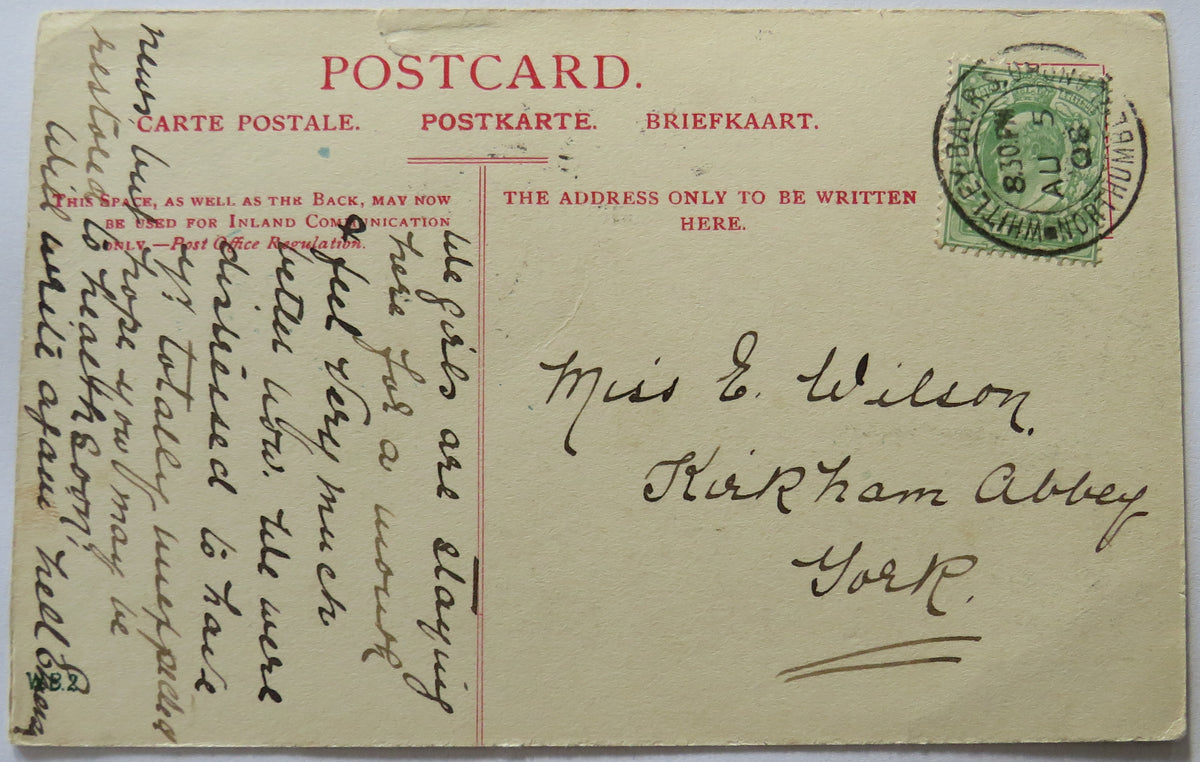 POSTCARD.
CARTE POSTALE. POSTKARTE. BRIEFKAART.
THIS SPACE, AS WELL AS THE BACK, MAY NOW
BE USED FOR INLAND COMMUNICATION
ONLY.—Post Office Regulation.
THE ADDRESS ONLY TO BE WRITTEN
HERE.
WHITLEY-BAY.R.S.O NORTHUMBERLAND
8.30PM
AU 5
08
Miss E. Wilson.
Kirkham Abbey
York.
We girls are staying
here for a month
& feel very much
better now. We were
distressed to have
yr: totally unexpected
news, but hope you may be
restored to health soon!
Will write again Nell
W.B.2